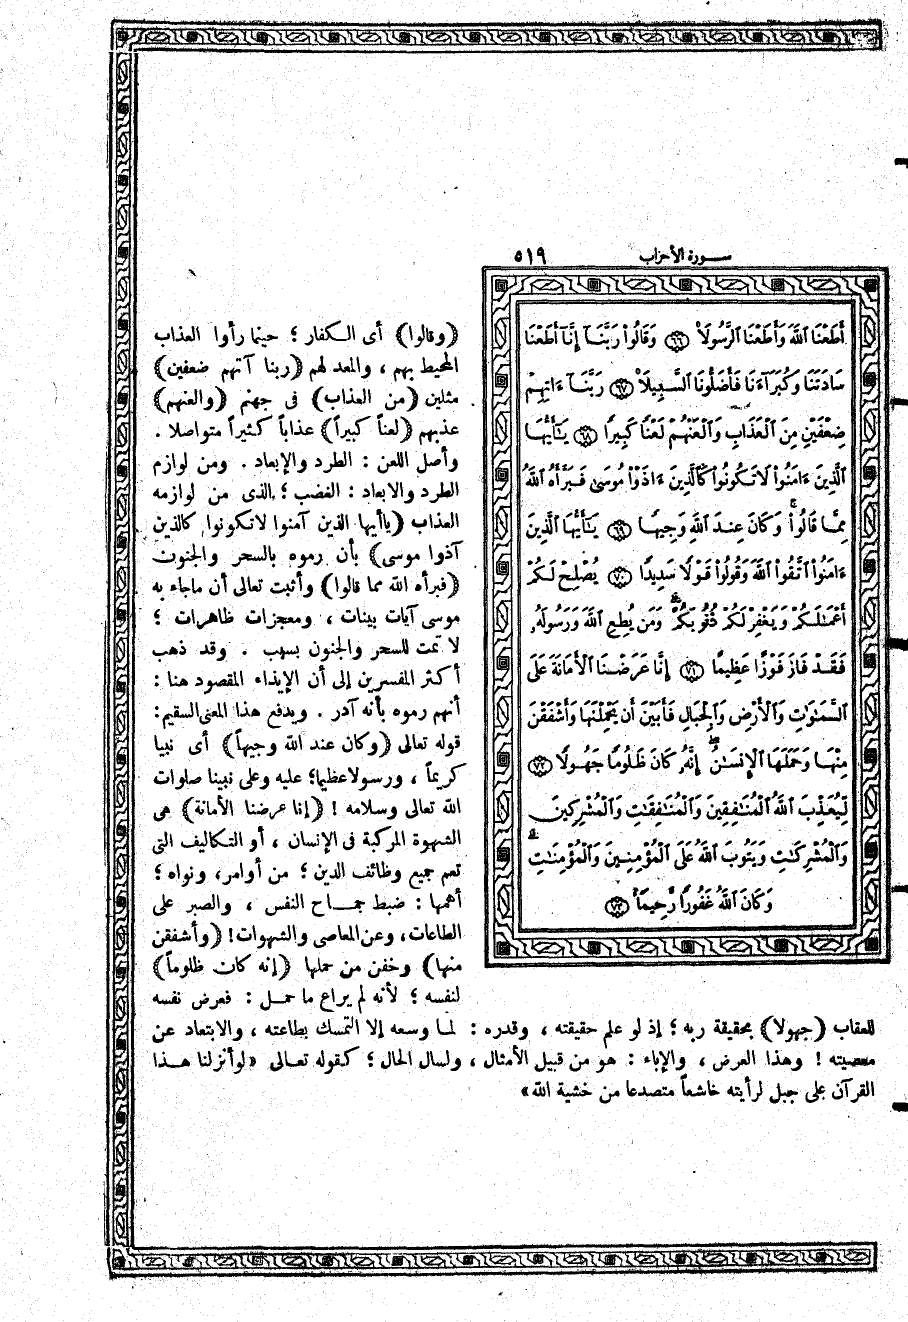 سورة الأحزاب ٥١٩
أَطَعْنَا ٱللَّهَ وَأَطَعْنَا ٱلرَّسُولَا۠ ٦٦ وَقَالُوا۟ رَبَّنَآ إِنَّآ أَطَعْنَا
سَادَتَنَا وَكُبَرَآءَنَا فَأَضَلُّونَا ٱلسَّبِيلَا۠ ٦٧ رَبَّنَآ ءَاتِهِمْ
ضِعْفَيْنِ مِنَ ٱلْعَذَابِ وَٱلْعَنْهُمْ لَعْنًا كَبِيرًا ٦٨ يَـٰٓأَيُّهَا
ٱلَّذِينَ ءَامَنُوا۟ لَا تَكُونُوا۟ كَٱلَّذِينَ ءَاذَوْا۟ مُوسَىٰ فَبَرَّأَهُ ٱللَّهُ
مِمَّا قَالُوا۟ ۚ وَكَانَ عِندَ ٱللَّهِ وَجِيهًا ٦٩ يَـٰٓأَيُّهَا ٱلَّذِينَ
ءَامَنُوا۟ ٱتَّقُوا۟ ٱللَّهَ وَقُولُوا۟ قَوْلًا سَدِيدًا ٧٠ يُصْلِحْ لَكُمْ
أَعْمَـٰلَكُمْ وَيَغْفِرْ لَكُمْ ذُنُوبَكُمْ ۗ وَمَن يُطِعِ ٱللَّهَ وَرَسُولَهُۥ
فَقَدْ فَازَ فَوْزًا عَظِيمًا ٧١ إِنَّا عَرَضْنَا ٱلْأَمَانَةَ عَلَى
ٱلسَّمَـٰوَٰتِ وَٱلْأَرْضِ وَٱلْجِبَالِ فَأَبَيْنَ أَن يَحْمِلْنَهَا وَأَشْفَقْنَ
مِنْهَا وَحَمَلَهَا ٱلْإِنسَـٰنُ ۖ إِنَّهُۥ كَانَ ظَلُومًا جَهُولًا ٧٢
لِّيُعَذِّبَ ٱللَّهُ ٱلْمُنَـٰفِقِينَ وَٱلْمُنَـٰفِقَـٰتِ وَٱلْمُشْرِكِينَ
وَٱلْمُشْرِكَـٰتِ وَيَتُوبَ ٱللَّهُ عَلَى ٱلْمُؤْمِنِينَ وَٱلْمُؤْمِنَـٰتِ ۗ
وَكَانَ ٱللَّهُ غَفُورًا رَّحِيمًا ٧٣
(وقالوا) أى الكفار ؛ حينما رأوا العذاب
المحيط بهم ، والمعد لهم (ربنا آتهم ضعفين)
مثلين (من العذاب) فى جهنم (والعنهم)
عذبهم (لعناً كبيراً) عذاباً كثيراً متواصلا .
وأصل اللعن : الطرد والإبعاد . ومن لوازم
الطرد والابعاد : الغضب ؛ الذى من لوازمه
العذاب (ياأيها الذين آمنوا لاتكونوا كالذين
آذوا موسى) بأن رموه بالسحر والجنون
(فبرأه الله مما قالوا) وأثبت تعالى أن ماجاء به
موسى آيات بينات ، ومعجزات ظاهرات ؛
لا تمت للسحر والجنون بسبب . وقد ذهب
أكثر المفسرين إلى أن الإيذاء المقصود هنا :
أنهم رموه بأنه آدر . ويدفع هذا المعنى السقيم:
قوله تعالى (وكان عند الله وجيهاً) أى نبيا
كريماً ، ورسولا عظيما؛ عليه وعلى نبينا صلوات
الله تعالى وسلامه ! (إنا عرضنا الأمانة) هى
الشهوة المركبة فى الإنسان ، أو التكاليف التى
تعم جميع وظائف الدين ؛ من أوامر، ونواه ؛
أهمها : ضبط جماح النفس ، والصبر على
الطاعات، وعن المعاصى والشهوات! (وأشفقن
منها) وخفن من حملها (إنه كان ظلوماً)
لنفسه ؛ لأنه لم يراع ما حمل : فعرض نفسه
للعقاب (جهولا) بحقيقة ربه ؛ إذ لو علم حقيقته ، وقدره : لما وسعه إلا التمسك بطاعته ، والابتعاد عن
معصيته ! وهذا العرض ، والإباء : هو من قبيل الأمثال ، ولسان الحال ؛ كقوله تعالى «لو أنزلنا هذا
القرآن على جبل لرأيته خاشعاً متصدعا من خشية الله»